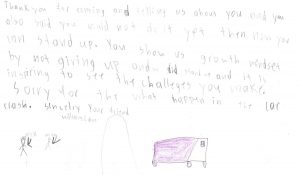 Thank you for coming and telling us about you and you
also said you could not do it yet. Then now you
can stand up. You show us growth mindset
by not giving up and did stand and it is
inspiring to see the challeges you make.
Sorry for the what happen in the car
crash. Your friend